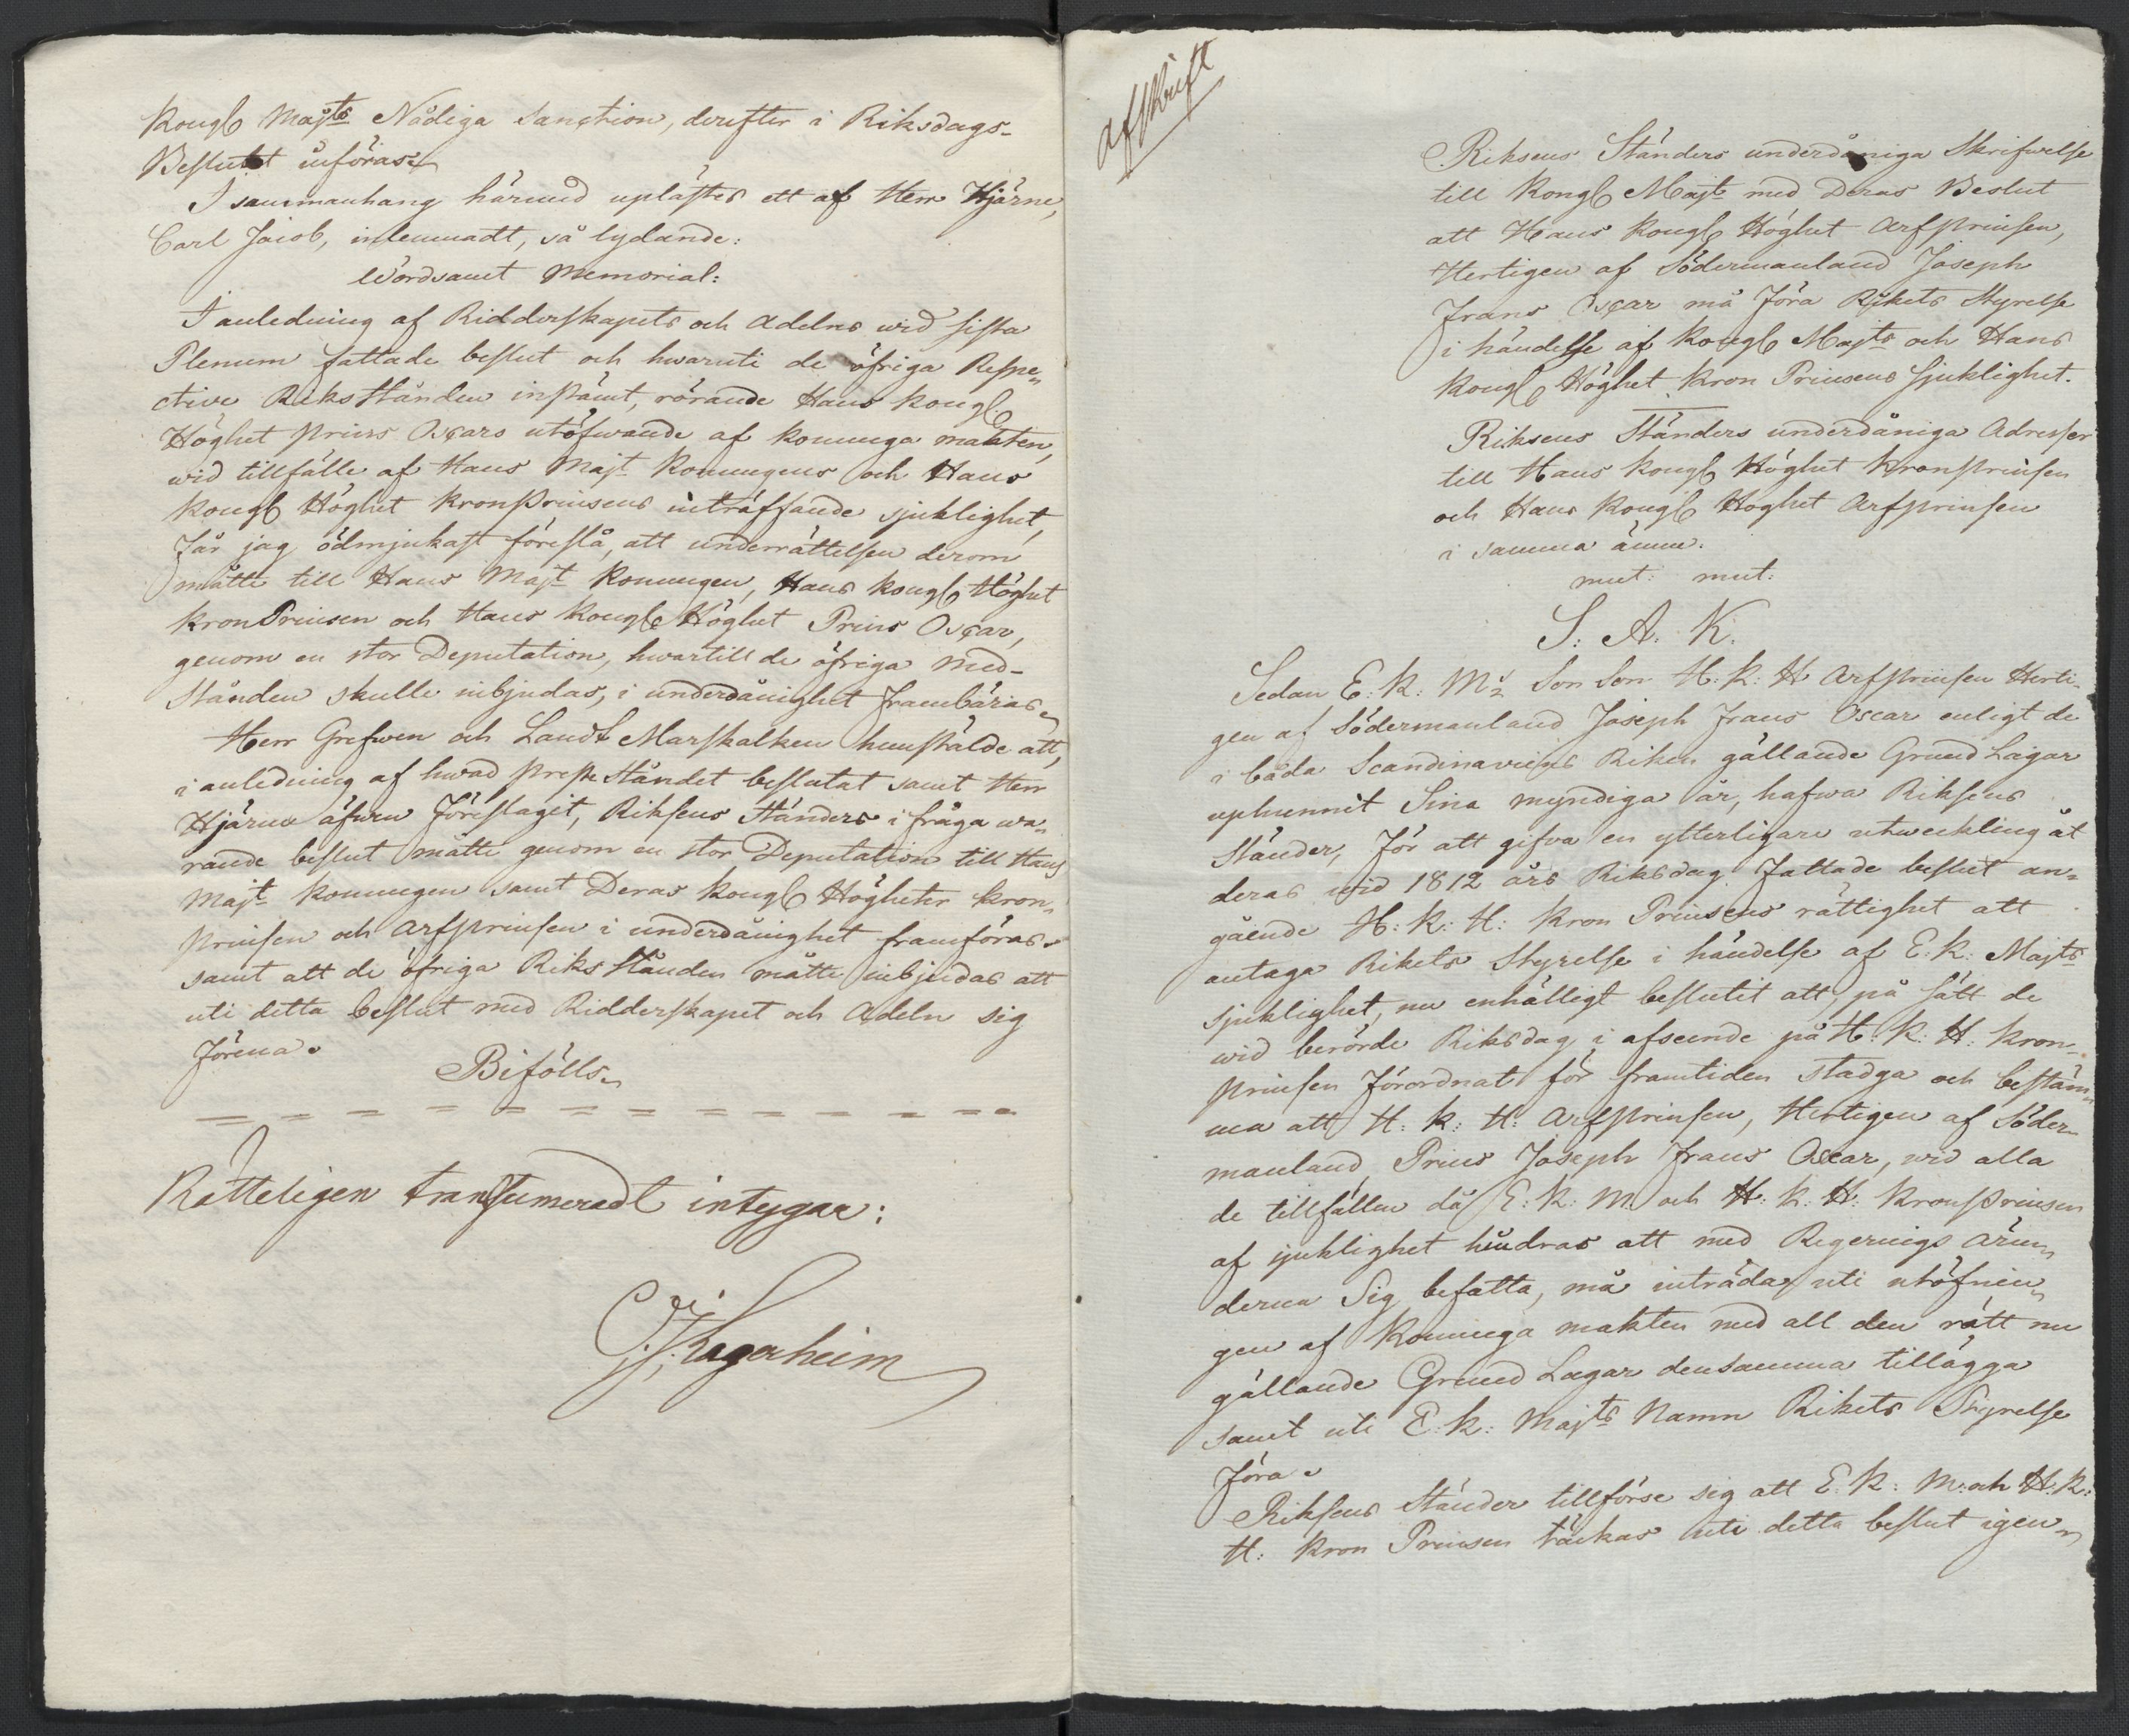 Kongl Majts Nådiga Sanction, derefter i Riksdags-
Beslutet införas.
I sammanhang härmed uplästes ett af Herr Hjärne,
Carl Jacob, inlemnadt, så lydande:
Wördsamt Memorial:
I anledning af Ridderskapets och Adelns wid sista
Plenum fattade beslut och hwaruti de öfriga Respe-
ctive RiksStånden instämt, rörande Hans Kongl
Höghet Prins Oscars utöfwande af Konunga makten,
wid tillfälle af Hans Majt Konungens och Hans
Kongl Höghet KronPrinsens inträffande sjuklighet,
får jag ödmjukast föreslå, att underrättelsen derom
måtte till Hans Majt Konungen, Hans Kongl Höghet
KronPrinsen och Hans Kongl Höghet Prins Oscar,
genom en stor Deputation, hwartill de öfriga Med-
Stånden skulle inbjudas, i underdånighet frambäras.
Herr Grefwen och Landt Marskalken hemstälde att,
i anledning af hwad PresteStåndet beslutat samt Herr
Hjärne äfwen föreslagit, Riksens Ständers i fråga wa-
rande beslut måtte genom en stor Deputation till Hans
Majt Konungen samt Deras Kongl Högheter Kron-
prinsen och Arfprinsen i underdånighet framföras.
samt att de öfriga RiksStånden måtte inbjudas att
uti detta beslut med Ridderskapet och Adeln sig
förena.
Bifölls.
Rätteligen transumeradt intygar:
Lagerheim
Afskrift
Riksens Ständers underdåniga Skrifwelse
till Kongl Majt med Deras Beslut
att Hans Kongl Höghet Arfprinsen,
Hertigen af Södermanland Joseph
Frans Oscar må föra Rikets Styrelse
i händelse af Kongl Majts och Hans
Kongl Höghet Kron Prinsens sjuklighet.
Riksens Ständers underdåniga Adresser
till Hans Kongl Höghet Kronprinsen
och Hans Kongl Höghet Arfprinsen
i samma ämne.
mut: mut:
S. A. K.
Sedan E: K: Ms Son Son H: K: H Arfprinsen Herti-
gen af Södermanland Joseph Frans Oscar enligt de
i båda Scandinaviens Riken gällande Grund Lagar
uphunnit Sina myndiga år, hafwa Riksens
Ständer, för att gifva en ytterligare utweckling åt
deras wid 1812 års Riksdag fattade beslut an-
gående H: K: H: Kron Prinsens rättighet att
antaga Rikets Styrelse i händelse af E. K: Majts
sjuklighet, nu enhälligt beslutit att, på sätt de
wid berörde Riksdag i afseende på H. K: H: Kron-
prinsen förordnat för framtiden stadga och bestäm-
ma att H: K: H: Arfprinsen, Hertigen af Söder-
manland Prins Joseph Frans Oscar, wid alla
de tillfällen då E: K: M: och H: K: H: KronPrinsen
af sjuklighet hindras att med Regerings Ären-
derna Sig befatta, må inträda uti utöfnin-
gen af Konunga makten med all den rätt nu
gällande Grund Lagar densamma tillägga
samt uti E: K: Majts Namn Rikets Styrelse
föra.
Riksens Ständer tillförse sig att E: K: M: och H: K:
H: Kron Prinsen täckas uti detta beslut igen-